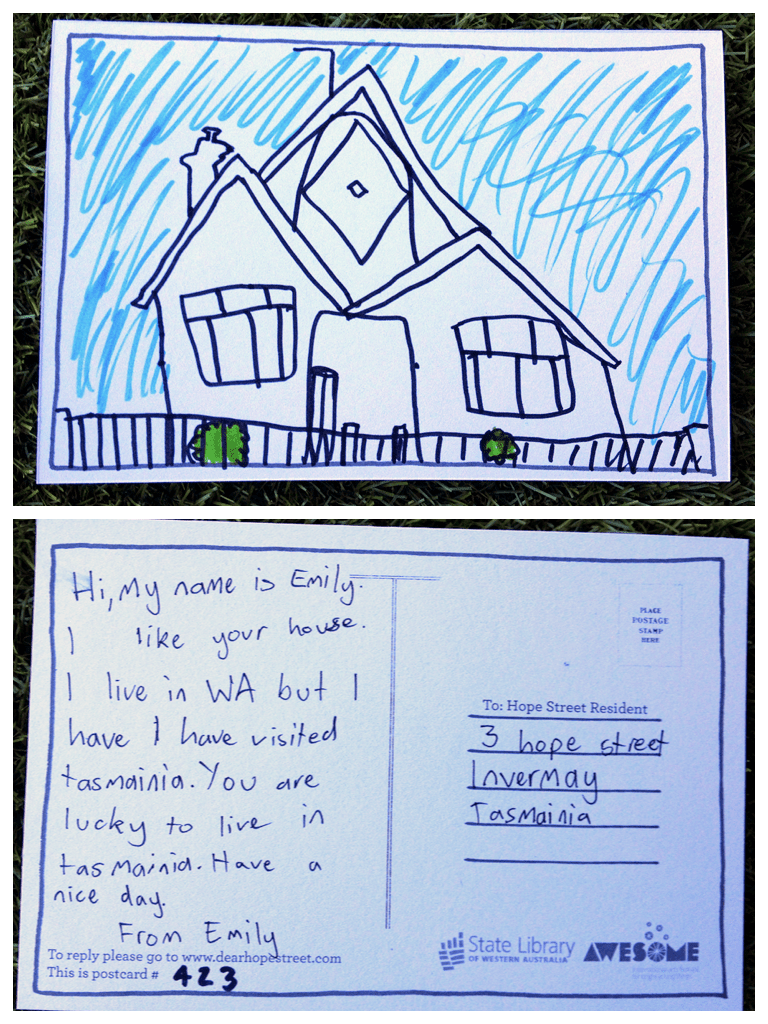 Hi, My name is Emily.
I like your house.
I live in WA but I
have I have visited
tasmainia. You are
lucky to live in
tasmainia. Have a
nice day.
From Emily
To reply please go to www.dearhopestreet.com
This is postcard # 423
PLACE
POSTAGE
STAMP
HERE
To: Hope Street Resident
3 hope street
Invermay
Tasmainia
State Library
OF WESTERN AUSTRALIA
AWESOME